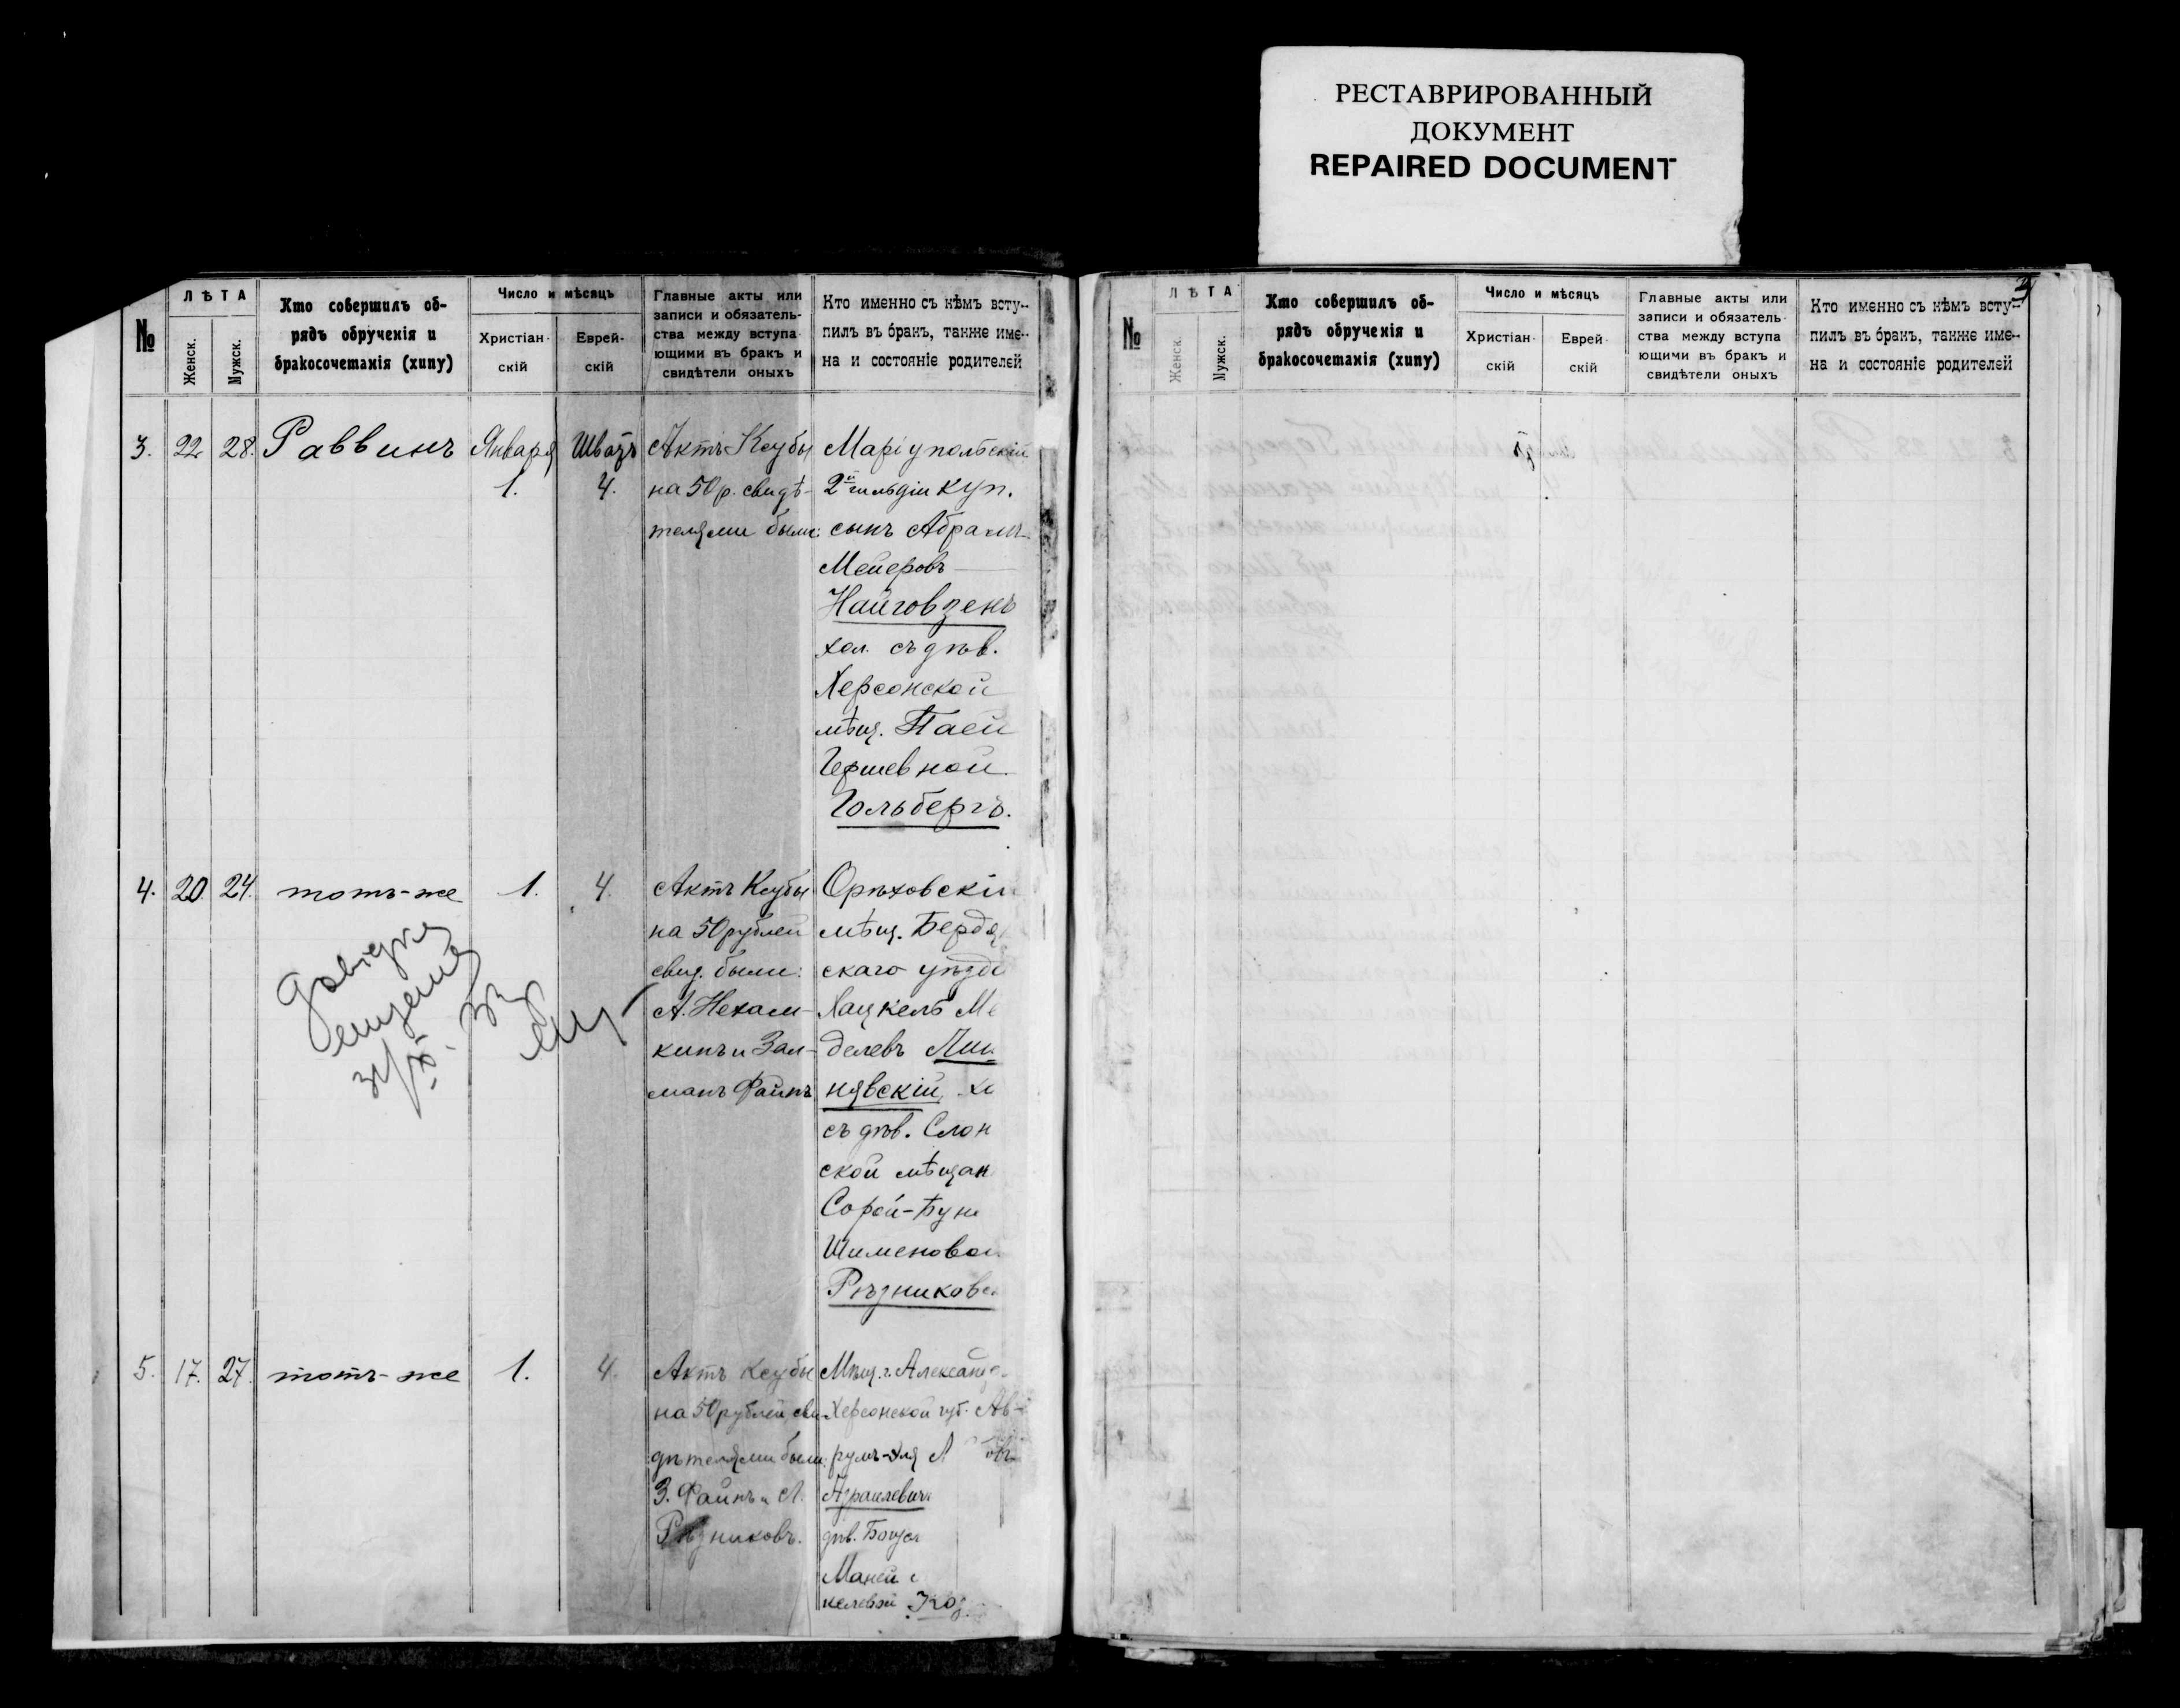 РЕСТАВРИРОВАННЫЙ
ДОКУМЕНТ
REPAIRED DOCUMENT
№
ЛѢТА
Женск.
Мужск.
Кто совершилъ об-
рядъ обрученія и
бракосочетанія (хипу)
Число и мѣсяцъ
Христіан-
скій
Еврей-
скій
Главные акты или
записи и обязатель-
ства между вступа-
ющими въ бракъ и
свидѣтели оныхъ
Кто именно съ кѣмъ всту-
пилъ въ бракъ, также име-
на и состояніе родителей
3.
22
28.
Раввинъ
Января
1.
Шватъ
4.
Актъ Ксубы
на 50 р. свидѣ-
телями были:
Маріупольскій
2й гильдіи куп.
сынъ Абрамъ
Мейеровъ
Найговзенъ
хол. съ дѣв.
Херсонской
мѣщ. Паей
Гершевной
Гольбергъ.
4.
20.
24.
тотъ-же
1.
4.
Актъ Ксубы
на 50 рублей
свид. были:
А. Нехам-
кинъ и Зал-
манъ Файнъ
Орѣховскій
мѣщ. Бердя
скаго уѣзда
Хацкель Ме
делевъ
нявскій, хо
съ дѣв. Слон
ской мѣщан
Сорей-Буни
Шименовой
Рѣзниковой
5.
17.
27.
тотъ-же
1.
4.
Актъ Ксубы
на 50 рублей сви-
дѣтелями были:
З. Файнъ и А.
Рѣзниковъ.
Мѣщ. г. Александ
Херсонской губ. Ав-
румъ-Эля Л овъ
Азраилевичъ
дѣв.
Маней
келевой Коз
№
ЛѢТА
Женск.
Мужск.
Кто совершилъ об-
рядъ обрученія и
бракосочетанія (хипу)
Число и мѣсяцъ
Христіан-
скій
Еврей-
скій
Главные акты или
записи и обязатель-
ства между вступа
ющими въ бракъ и
свидѣтели оныхъ
Кто именно съ кѣмъ всту-
пилъ въ бракъ, также име-
на и состояніе родителей
3